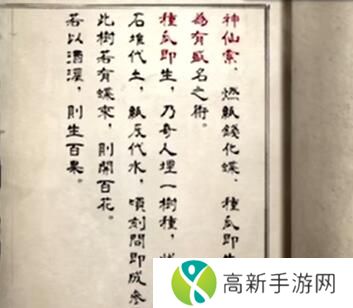 神仙索、燃紙錢化蝶、種瓜即生
為有或名之術。
種瓜即生，乃奇人埋一樹種，
石堆代土，紙灰代水，頃刻間即成參
此樹若有蝶來，則開百花。
若以酒澆，則生百果。
高新手游网